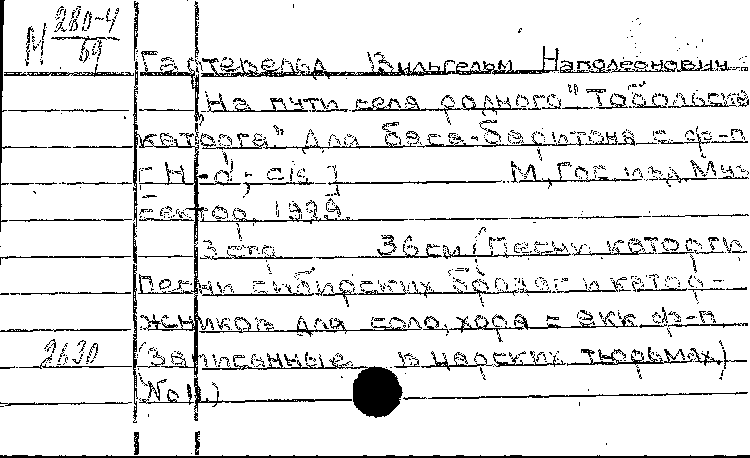 М 280-4
69
Гартевельд Вильгельм Наполеонович
На пути села родного "Тобольска
каторга" Для баса-баритона с ф-п
[H-d'; cis] М, Гос. изд. Муз
сектор, 1929.
3 стр. 36 см (Песни каторги
Песни сибирских бродяг и катор-
жников для соло, хора с акк. ф-п
2630 (Записанные в царских тюрьмах)
No 11.)